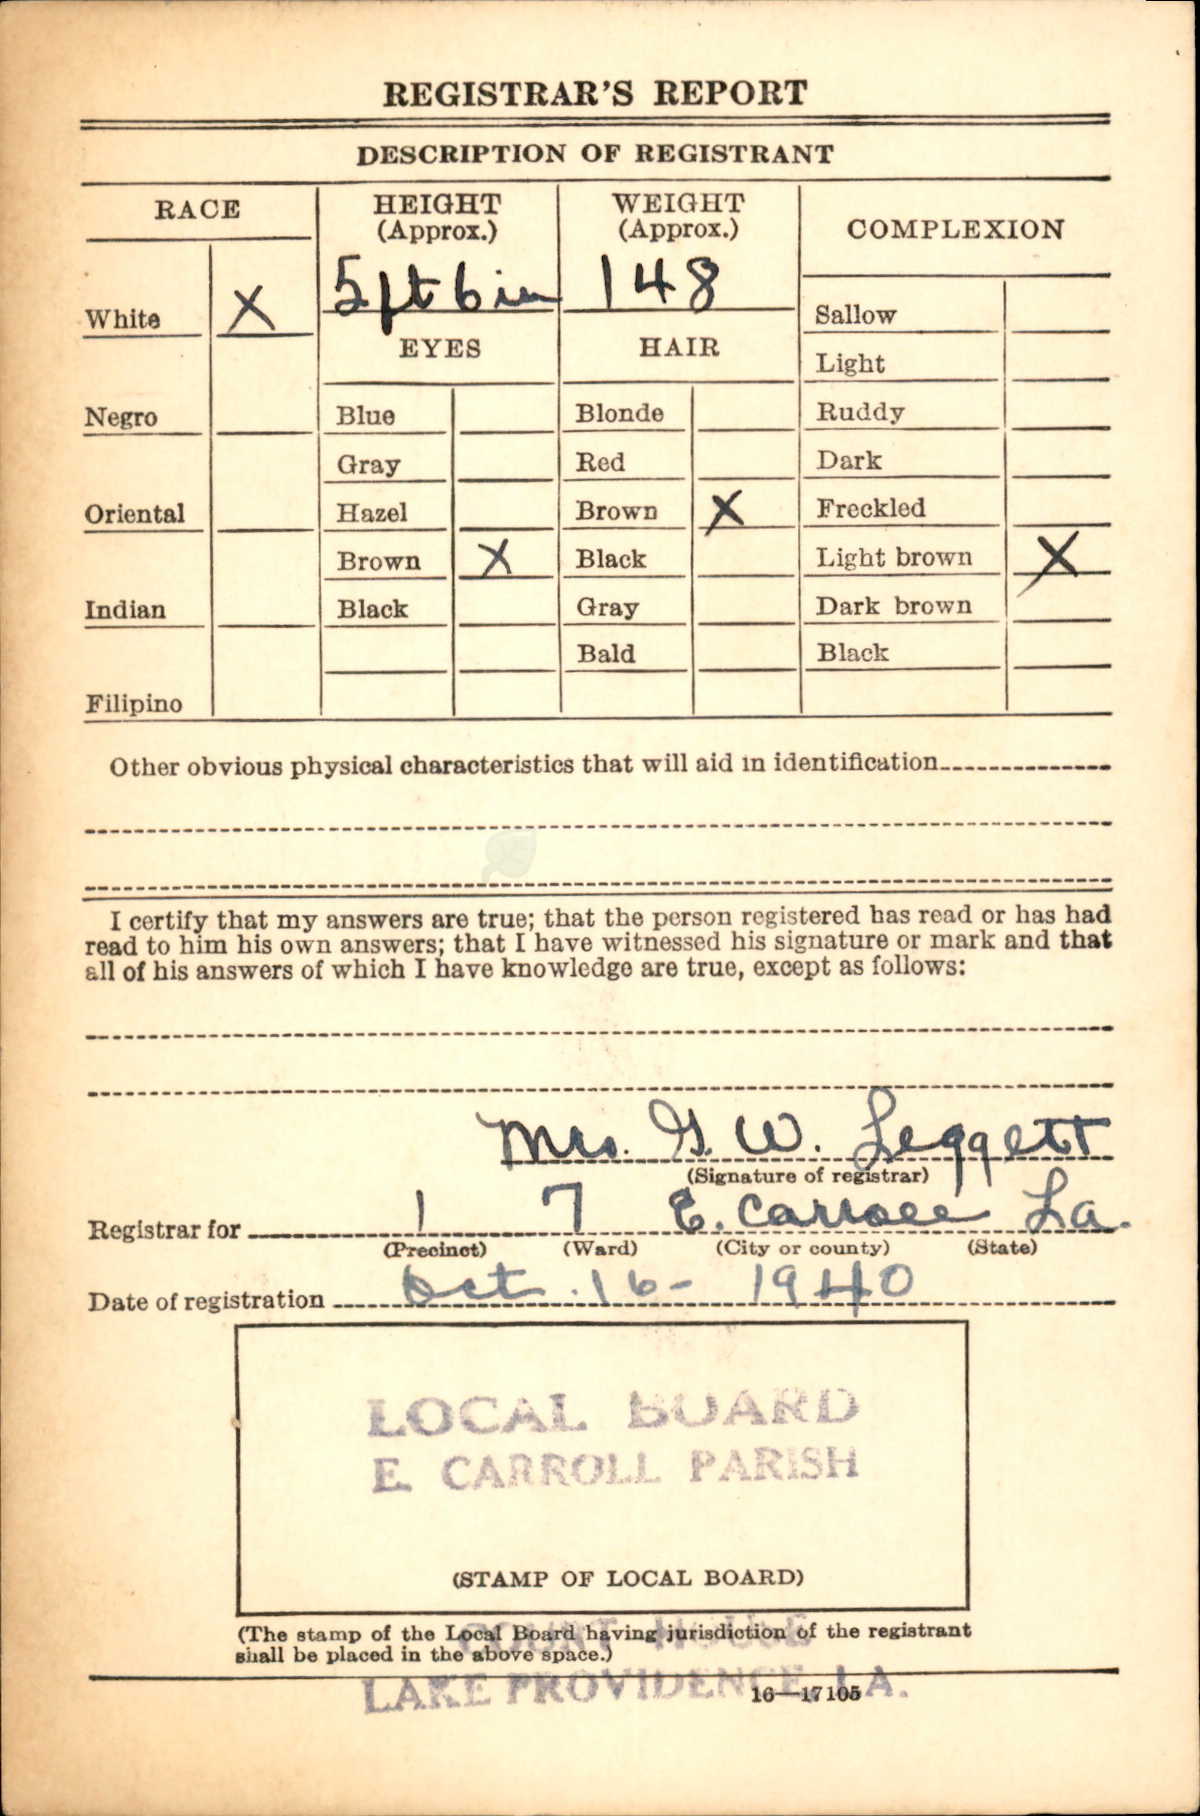 REGISTRAR'S REPORT
DESCRIPTION OF REGISTRANT
RACE
HEIGHT
(Approx.)
WEIGHT
(Approx.)
COMPLEXION
5 ft 6 in
148
White X
EYES
HAIR
Sallow
Light
Negro
Blue
Blonde
Ruddy
Gray
Red
Dark
Oriental
Hazel
Brown X
Freckled
Brown X
Black
Light brown X
Indian
Black
Gray
Dark brown
Bald
Black
Filipino
Other obvious physical characteristics that will aid in identification
I certify that my answers are true; that the person registered has read or has had
read to him his own answers; that I have witnessed his signature or mark and that
all of his answers of which I have knowledge are true, except as follows:
Mrs. G. W. Leggett
(Signature of registrar)
Registrar for 1 7 E. Carroll La.
(Precinct) (Ward) (City or county) (State)
Date of registration Oct. 16- 1940
LOCAL BOARD
E. CARROLL PARISH
(STAMP OF LOCAL BOARD)
COURT HOUSE
(The stamp of the Local Board having jurisdiction of the registrant
shall be placed in the above space.)
LAKE PROVIDENCE, LA.
16—17105